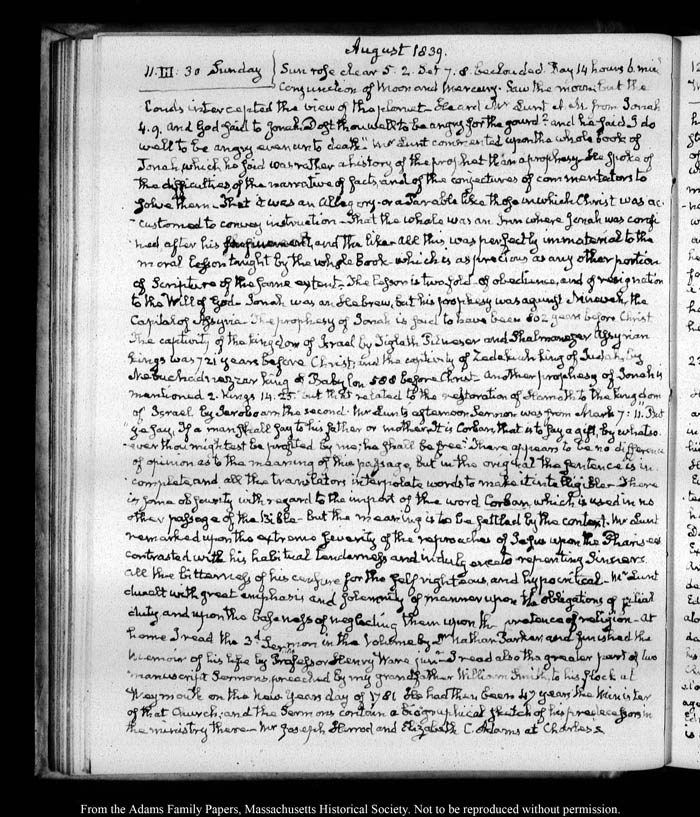 August 1839.
11. III: 30 Sunday } Sun rose clear 5. 2. Set 7. 8. beclouded. Day 14 hours 6. min
Conjunction of Moon and Mercury. Saw the moon but the
Clouds intercepted the view of the planet. Heard Mr Lunt at ch. from Jonah
4. 9. And God said to Jonah, Dost thou well to be angry for the gourd? and he said I do
well to be angry even unto death." Mr Lunt commented upon the whole book of
Jonah, which he said was rather a history of the prophet than a prophesy. He spoke of
the difficulties of the narrative of facts, and of the conjectures of commentators to
solve them. That it was an Allegory or a Parable like those in which Christ was ac-
customed to convey instruction - That the whale was an Inn where Jonah was confi
ned after his and the like - all this was perfectly immaterial to the
moral lesson taught by the whole book which is as precious as any other portion
of Scripture of the same extent. The lesson is twofold, of obedience, and of resignation
to the Will of God. Jonah was an Hebrew, but his prophesy was against Nineveh, the
Capital of Assyria. The prophesy of Jonah is said to have been 802 years before Christ
The captivity of the kingdom of Israel by Tiglath Pileser and Shalmanezer Assyrian
kings was 721 years before Christ, and the captivity of Zedekiah king of Judah, by
Nebuchadnezzar king of Babylon 588 before Christ. Another prophesy of Jonah is
mentioned 2. Kings 14. 25. but that related to the restoration of Hamath to the kingdom
of Israel by Jeroboam the second. Mr Lunt's afternoon Sermon was from Mark 7: 11. "But
"ye say, If a man shall say to his father or mother It is Corban, that is to say a gift, by whatso-
ever thou mightest be profited by me; he shall be free." There appears to be no difference
of opinion as to the meaning of this passage, but in the original the sentence is in-
complete, and all the translators interpolate words to make it intelligible. There
is some obscurity with regard to the import of the word Corban, which is used in no
other passage of the Bible - But the meaning is to be settled by the context. Mr Lunt
remarked upon the extreme severity of the reproaches of Jesus upon the Pharisees
contrasted with his habitual tenderness and indulgence to repenting Sinners
all the bitterness of his censure for the self righteous, and hypocritical. Mr Lunt
dwelt with great emphasis and solemnity of manner upon the obligations of filial
duty and upon the baseness of neglecting them upon the pretence of religion - At
home I read the 3d Sermon in the Volume by Mr Nathan Parker and finished the
Memoir of his life by Professor Henry Ware junr. I read also the greater part of two
manuscript Sermons, preached by my grandfather William Smith, to his flock at
Weymouth on the New Years day of 1781 He had then been 47 years the Minister
of that Church; and the Sermons contain a biographical sketch of his predecessors in
the ministry there - Mr Joseph Harrod and Elizabeth C. Adams at Charles's
From the Adams Family Papers, Massachusetts Historical Society. Not to be reproduced without permission.